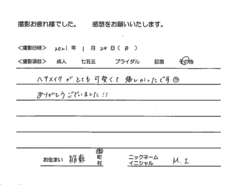 撮影お疲れ様でした。 感想をお願いいたします。
<撮影日時> 2021 年 1 月 24 日 ( 日 )
<撮影項目> 成人 七五三 ブライダル 記念 その他
ヘアメイクがとても可愛くて 嬉しかったです
ありがとうございました!!
お住まい 町 村 ニックネーム イニシャル M.I